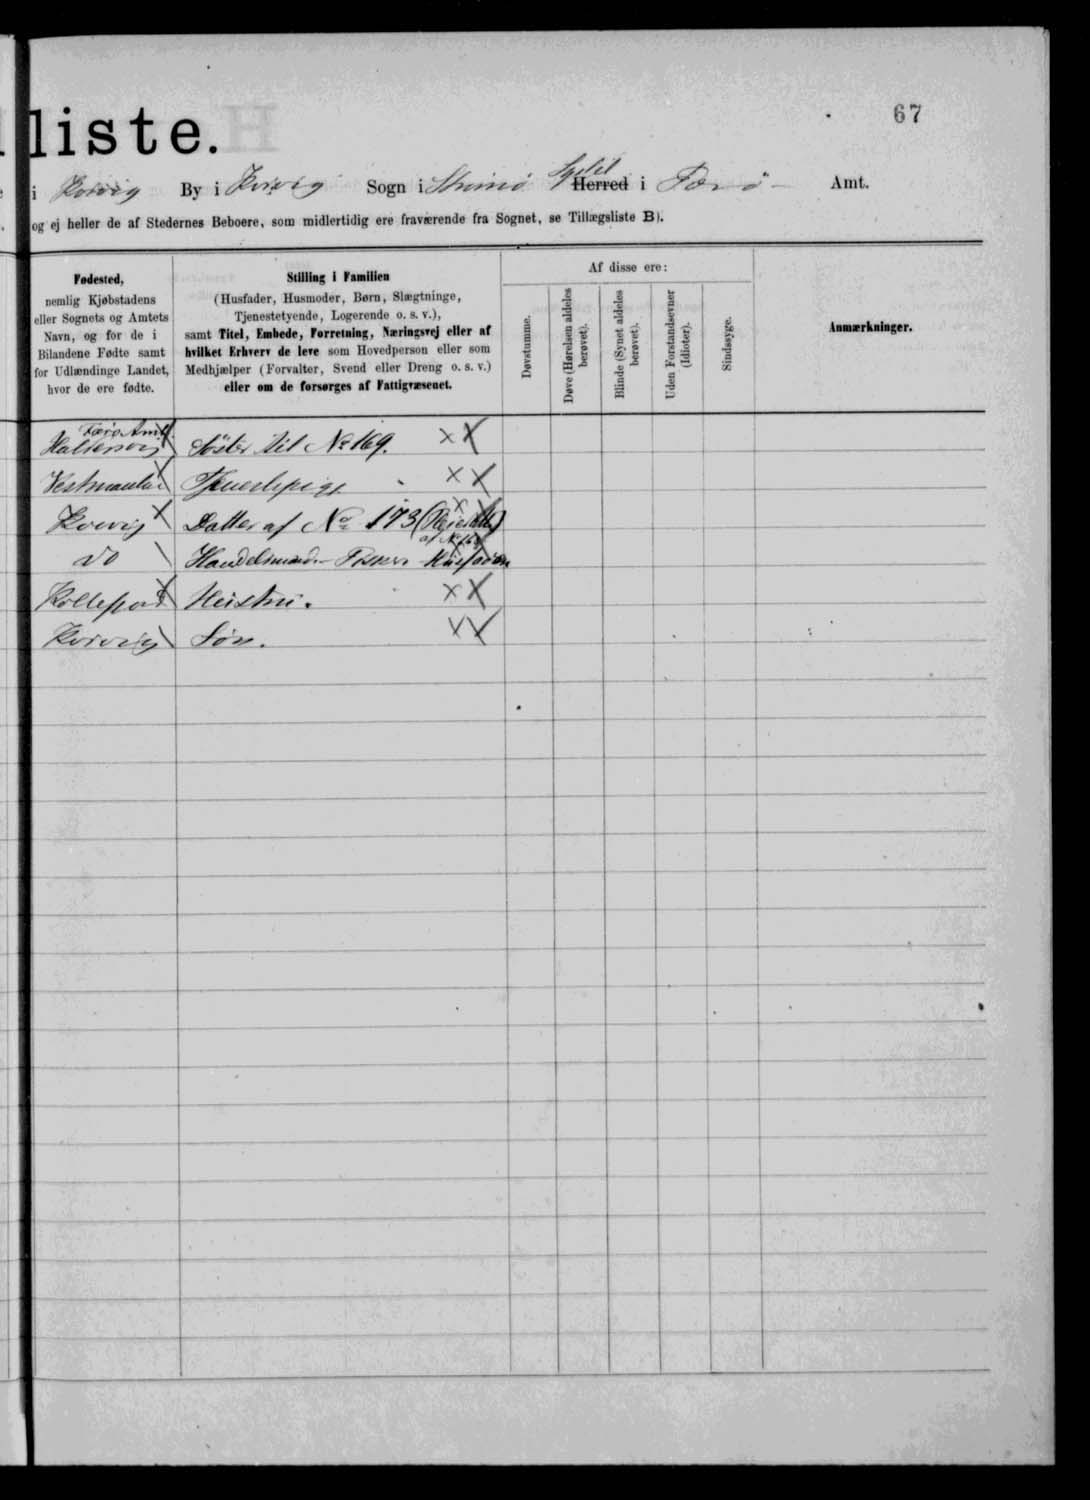 67
liste.
i Kvivig By i Kvivig Sogn i Strømø Syssel Herred i Færø Amt.
og ej heller de af Stedernes Beboere, som midlertidig ere fraværende fra Sognet, se Tillægsliste B).
Fødested,
nemlig Kjøbstadens
eller Sognets og Amtets
Navn, og for de i
Bilandene Fødte samt
for Udlændinge Landet,
hvor de ere fødte.
Stilling i Familien
(Husfader, Husmoder, Børn, Slægtninge,
Tjenestetyende, Logerende o. s. v.),
samt Titel, Embede, Forretning, Næringsvej eller af
hvilket Erhverv de leve som Hovedperson eller som
Medhjælper (Forvalter, Svend eller Dreng o. s. v.)
eller om de forsørges af Fattigvæsenet.
Af disse ere:
Døvstumme.
Døve (Hørelsen aldeles
berøvet).
Blinde (Synet aldeles
berøvet).
Uden Forstandsevner
(Idioter).
Sindssyge.
Anmærkninger.
Færø Amt.
Haldersvig Söster til No 169. × ×
Tjenestepige × ×
Kvivig × Datter af No 173 (
af No
do Handelsmand
Hustru. × ×
Kvivig Sön. × ×